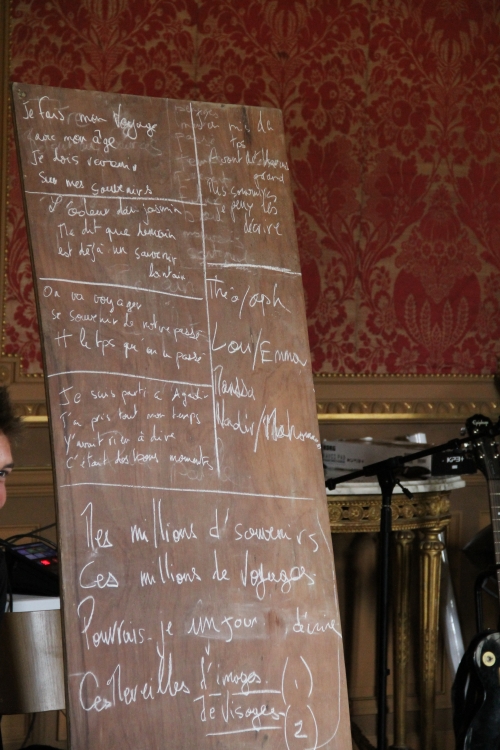 Je fais mon voyage
avec mon âge
Je dois revenir
sur mes souvenirs
L'odeur du jasmin
Me dit que demain
est déjà un souvenir
lointain
On va voyager
se souvenir de notre passé
# le tps qu'on a passé
Je suis parti à Agadir
J'ai pris tout mon temps
Y'avait rien à dire
C'était des bons moments
tps
Mes souvenirs
Je peux les
décrire
Théo/
Lou/Emma
Nadir/
Mes millions d'souvenirs
Ces millions de voyages
Pourrais-je un jour décrire
Ces Merveilles d'images (1)
de visages (2)
KORG
KP3+
Epiphone